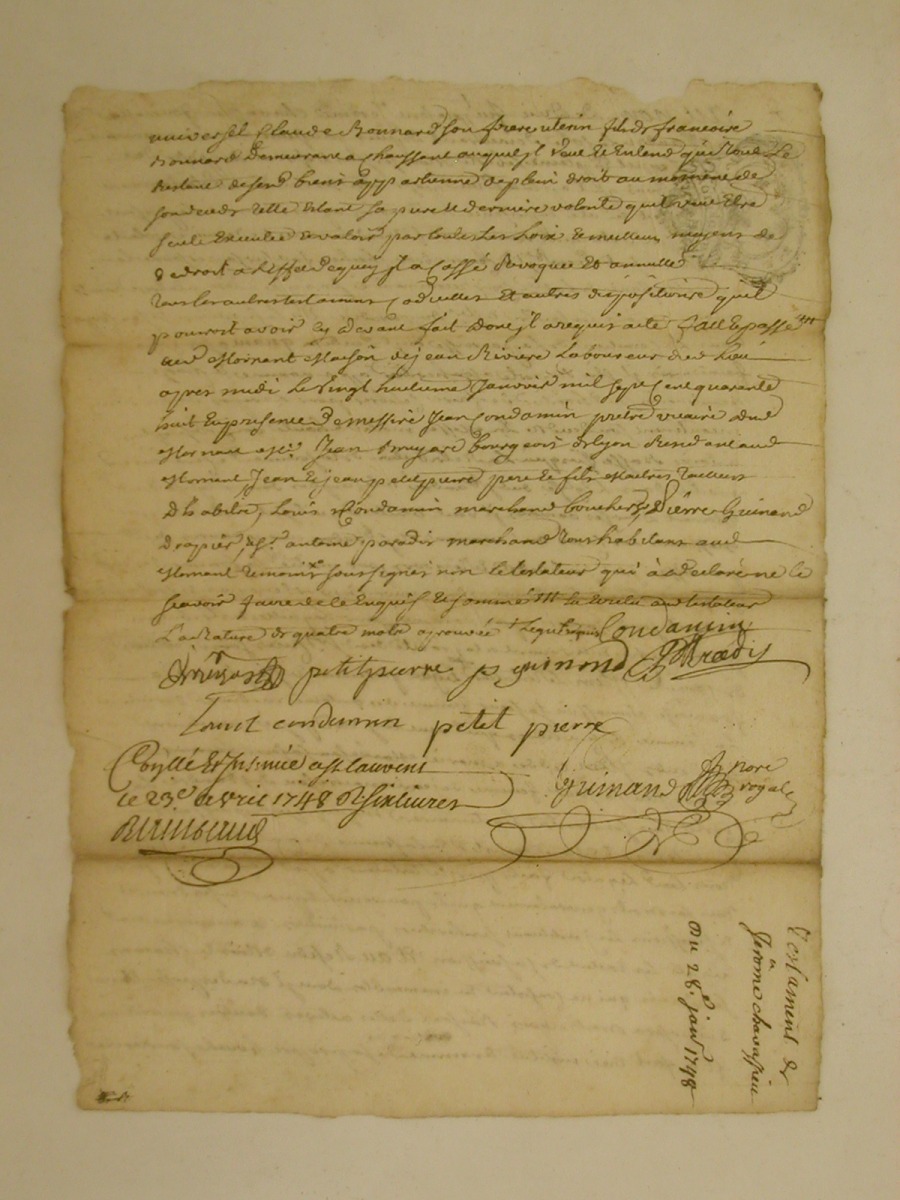 universel Claude Bonnard son frere uterin fils de francoise
Bonnard Demeurant a Chaussant auquel jl veut Et Entend que tout Le
Restant de send biens appartienne de plein droit au moment de
son deceds telle Estant sa pure Et derniere volonté quil veut Etre
seule Executée Et valoir par toutes Les Loix Et meilleur moyens de
de droit a L'effet de quoy jl a Cassé Revoquée Et annullé
tous les autres testaments Codicilles Et autres dispositions quil
pouvoit avoir cy devant fait dont jl a requis acte fait Et passé
aud Mornant Maison de jean Riviere Laboureur dud Lieu
apres midi le vingt huitieme Janvier mil sept Cent quarante
huit En presence De messire Jean Condamin pretre vicaire dud
Mornant Mr. Jean bourgeois de lyon Residant aud
Mornant Jean Et jean petitpierre pere Et fils Maitres tailleurs
D'habits, Louis Condamin marchand boucher, Pierre Guinand
drapier, & Sr. antoine paradis marchand tous habitans aud
Mornant temoins soussignés non le testateur qui a declaré ne le
scavoir faire de ce Enquis Et sommé
La Rature de quatre mots aprouvée Condamin
petitpierre p guinand Paradis
Louis condamin petit pierre
Controllé Et Insinué a St Laurent
le 23e. avril 1748 R six livres
Guinand nore royal
Rimbaud
Testament de
Jerome chavassieu
Du 28e janv 1748